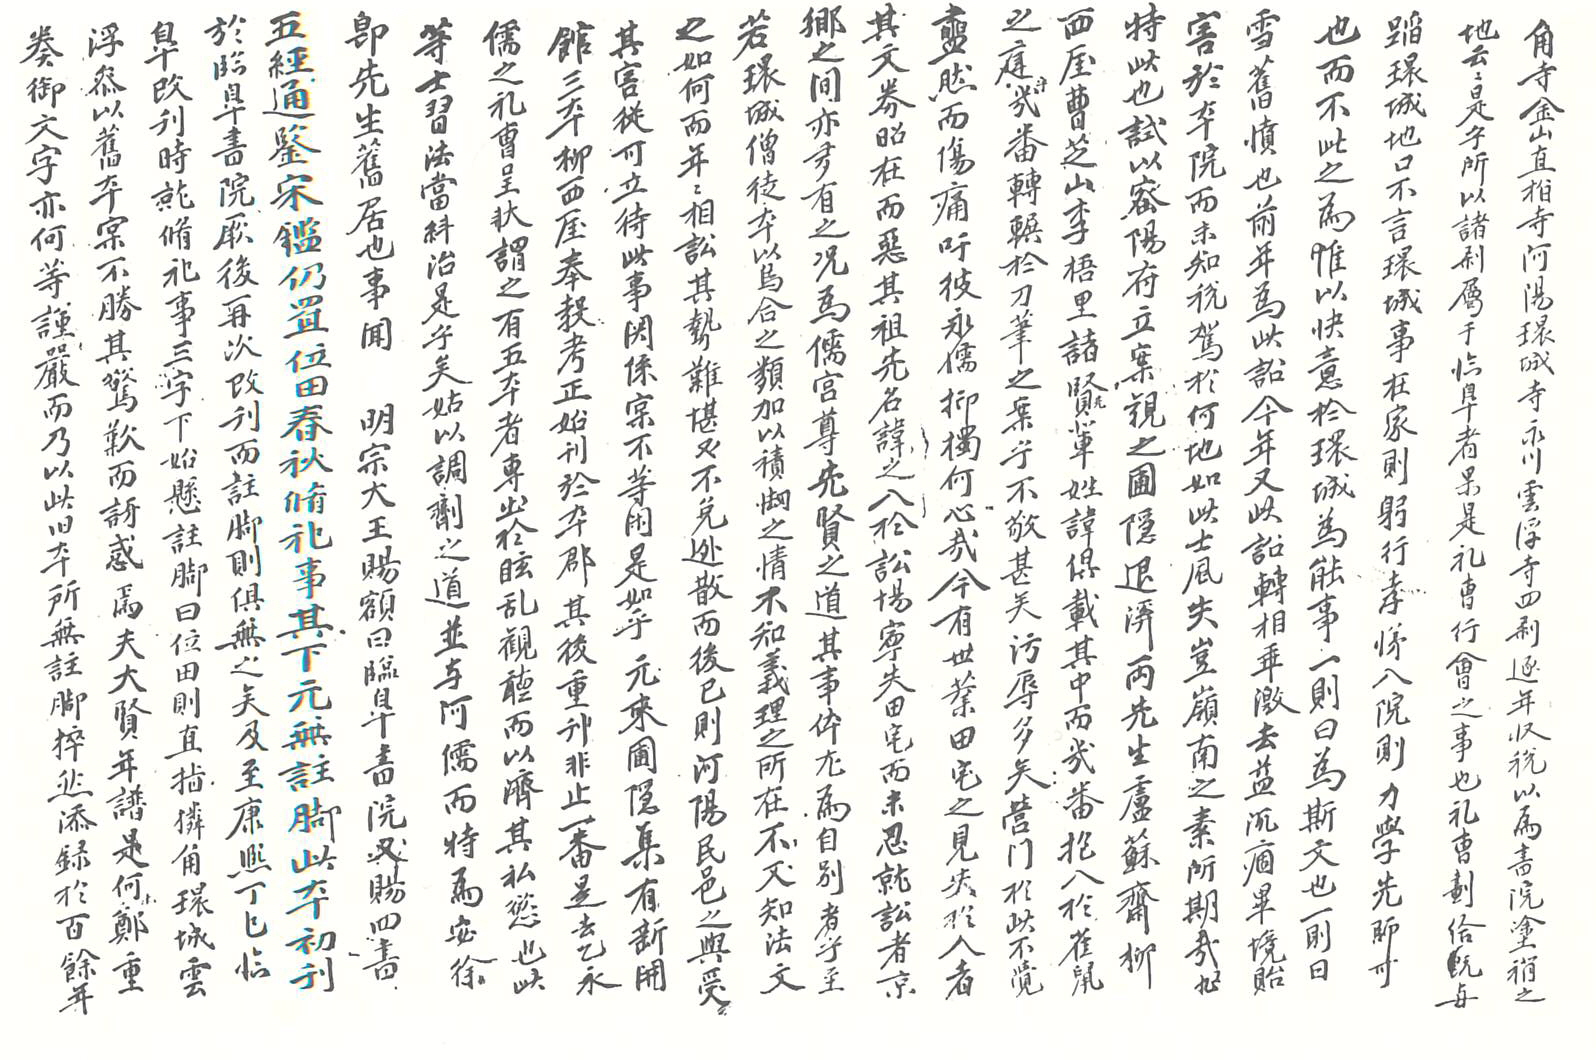 角寺金山直指寺河陽環城寺永川雲浮寺四刹逐年收稅以爲書院塗褙之
地云云是乎所以諸刹屬于臨皐者果是礼曹行會之事也礼曹劃給旣与
蹈環城地已不言環城事在家則躬行孝悌入院則力學先師可
也而不此之爲惟以快意於環城爲能事一則曰爲斯文也一則曰
雪舊憤也前年爲此訟今年又此訟轉相乖激去益沉痼畢境貽
害於本院而未知稅駕於何地如此士風失豈嶺南之素所期哉
特此也試以密陽府立案觀之圃隱退溪兩先生盧蘇齋柳
西厓曹芝山李梧里諸賢輩姓諱俱載其中而幾番抱入於雀鼠
之庭幾番轉輾於刀筆之案乎不敬甚矣汚辱多矣營門於此不覺
盡然而傷痛吁彼永儒抑獨何心哉今有世業田宅之見失於人者
其文券昭在而惡其祖先名諱之入於訟場寧失田宅而未忍就訟者京
鄕之間亦多有之况爲儒宮尊先賢之道其事体尤爲自別者乎至
若環城僧徒本以烏合之類加以積憫之情不知義理之所在不又知法文
之如何而年年相訟其勢難堪又不免迯散而後已則河陽民邑之與受
其害從可立待此事関係宲不等閑是如乎元來圃隱集有新開
館三本柳西厓奉敎考正始刊於本郡其後重刊非止一番是去乙永
儒之礼曹呈狀謂之有五本者專出於眩乱觀聽而以濟其私慾也此
等士習法當糾治是乎矣姑以調劑之道並与河儒而特爲安徐
卽先生舊居也事聞 明宗大王賜額曰臨皐書院又賜四書
五經通鑒宋鑑仍置位田春秋脩祀事其下元無註脚此本初刊
於臨皐書院厥後再次改刊而註脚則俱無之矣及至康熙丁巳臨
皐改刊時就脩祀事三字下始懸註脚曰位田則直指獜角環城雲
浮叅以舊本宲不勝其驚歎而訝惑焉夫大賢年譜是何鄭重
奏御文字亦何等謹嚴而乃以此旧本所無註脚猝然添錄於百餘年